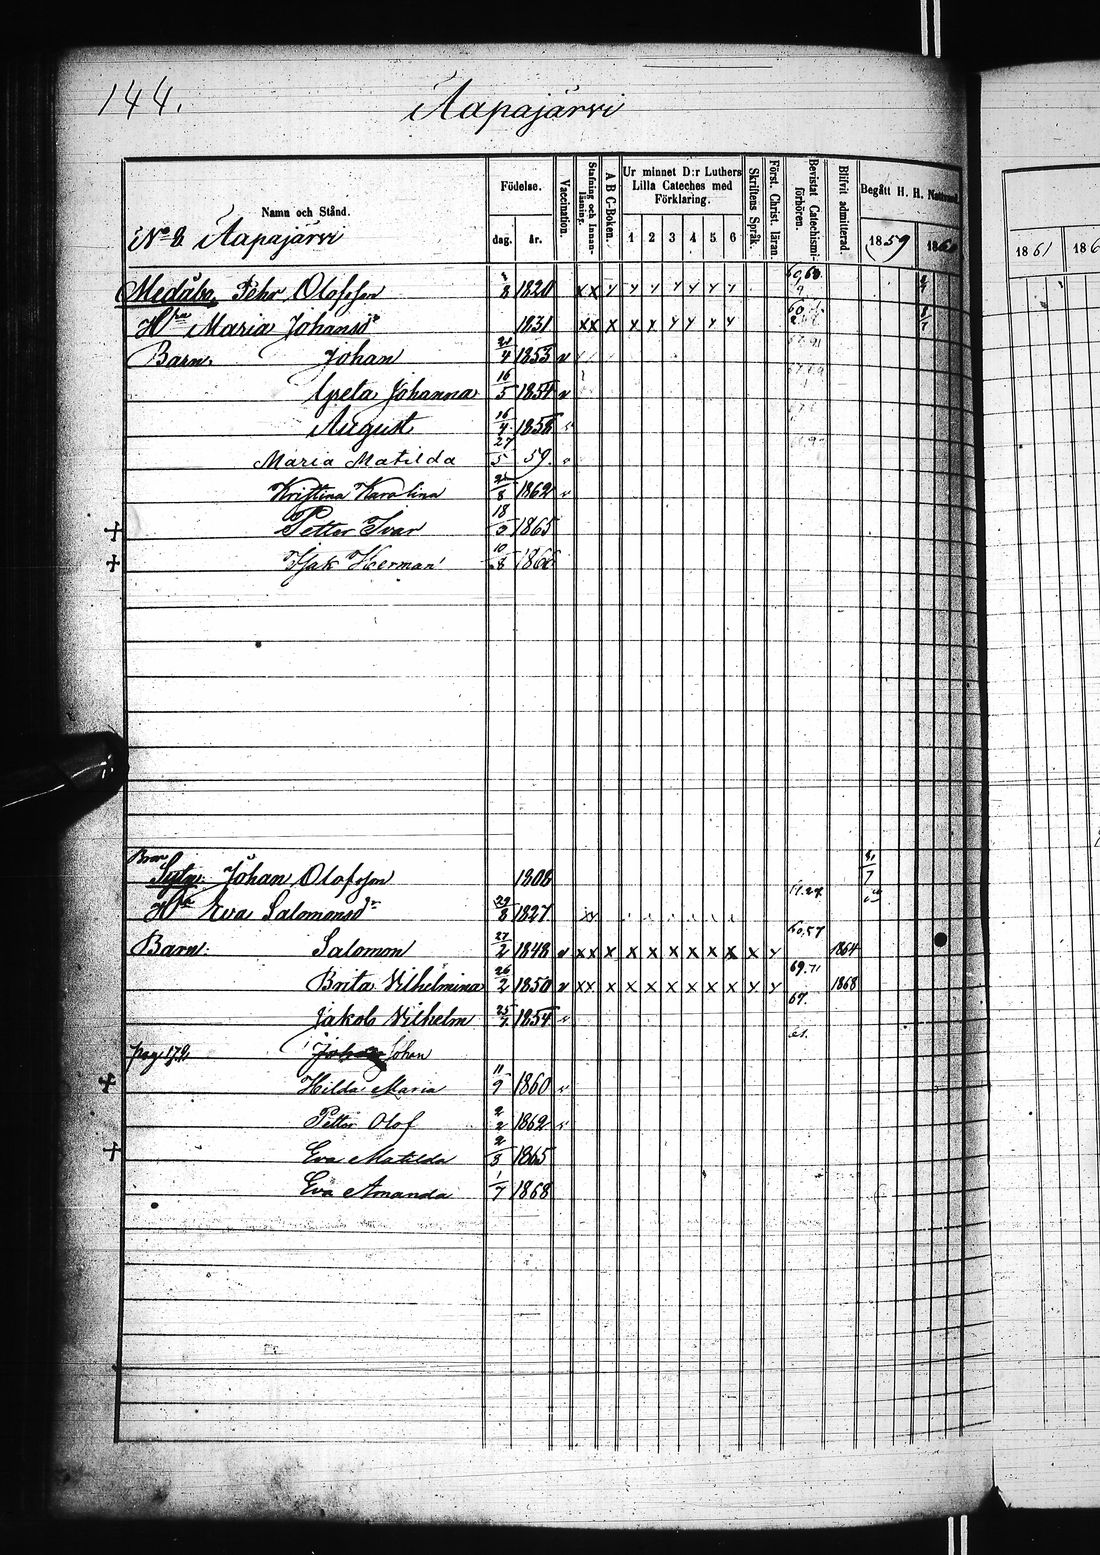 144.
Aapajärvi
Namn och Stånd.
Födelse.
dag.
år.
Vaccination.
Stafning och Innan-läsning.
A B C-Boken.
Ur minnet D:r Luthers Lilla Cateches med Förklaring.
1 2 3 4 5 6
Skriftens Språk.
Först. Christ. läran.
Bevistat Catechismi-förhören.
Blifvit admitterad.
Begått H. H. Nattvard.
1859
1860
1861
186
No 8. Aapajärvi
Medåbo Pehr Olofsson 8 1820 x x y y y y y y y
Hru Maria Johansdr 1831 x x x y y y y y y
Barn: Johan 4 1853
Greta Johanna 16/5 1854
August 16/4 1858
Maria Matilda 27/5 59.
Kristina Karolina 8 1862
+ Petter Ivar 18 1865
+ Isak Herman 10/8 1866
Johan Olofsson 1806
Hru Eva Salomonsdr 29/8 1827 xx
60,57
Barn: Salomon 27/2 1848 x x x x x x x x x x y 1864
69.71
Brita Vilhelmina 26/2 1850 x x x x x x x x x y y 1868
67.
Jakob Vilhelm 25/7 1854
pag. 172 Johan Johan
+ Hilda Maria 11/9 1860
Petter Olof 2/2 1862
+ Eva Matilda 2/8 1865
Eva Amanda 1/7 1868